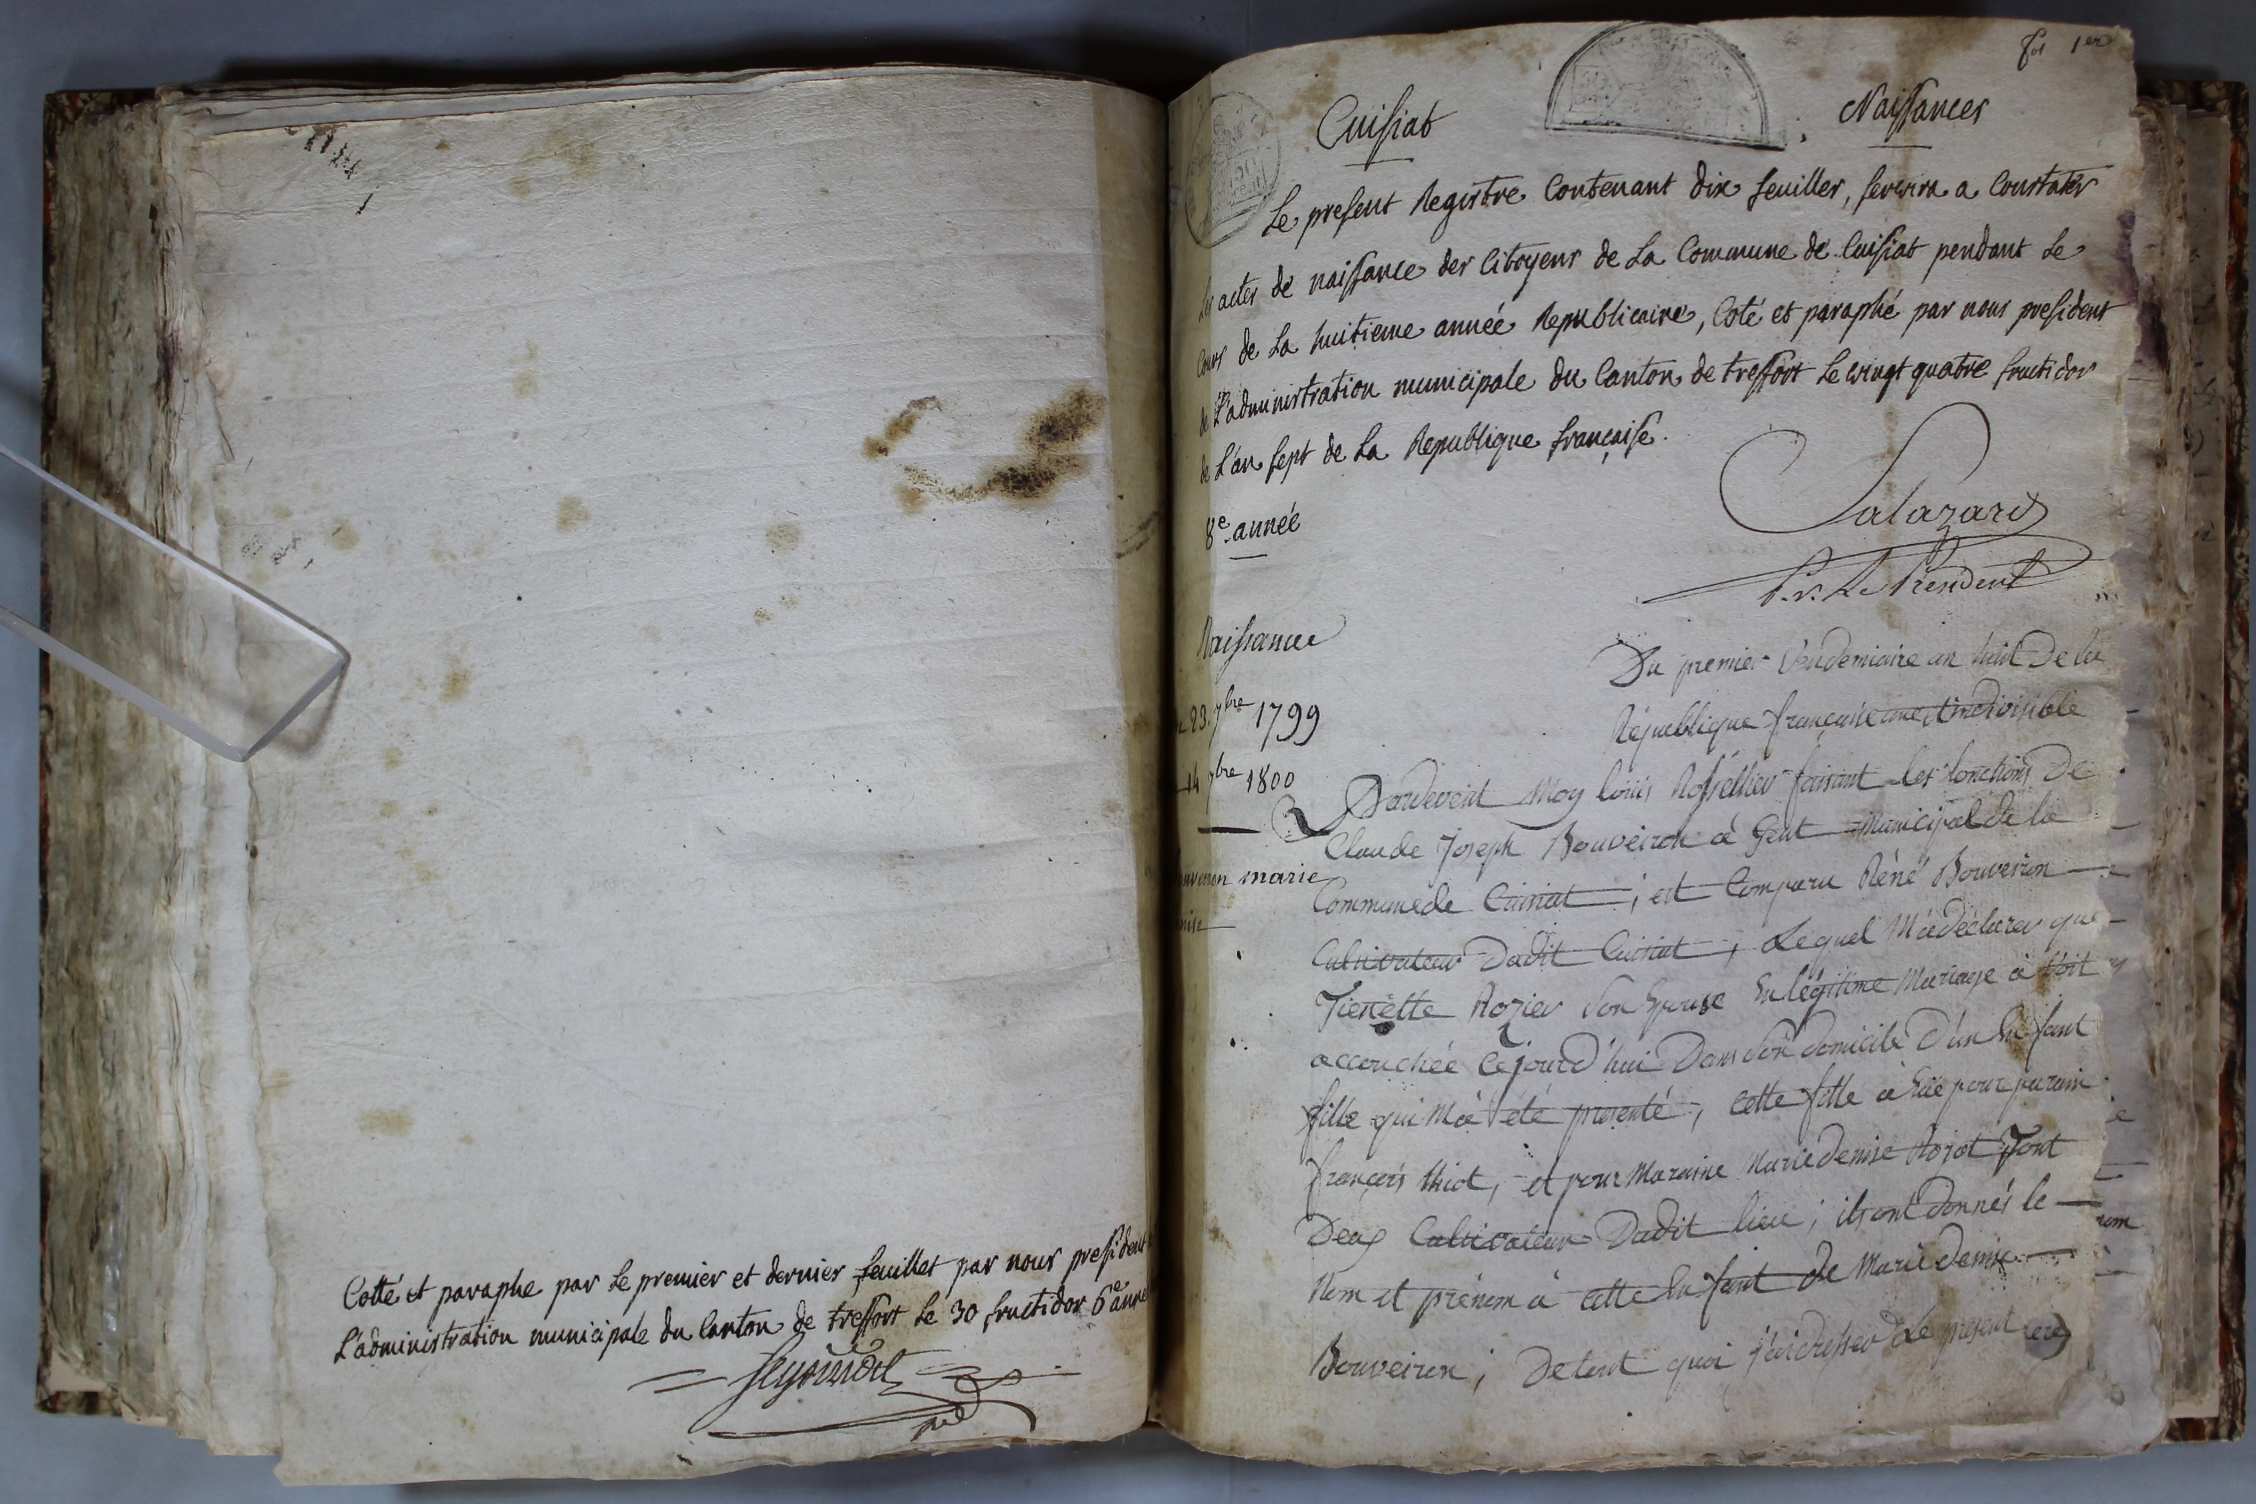 Cotté et paraphe par Le premier et dernier feuillet par nous president
L'administration municipale du Canton de treffort Le 30 fructidor 6e anné
fol 1er
Cuisiat
Naissances
Le present Registre Contenant dix feuilles, servira a Constater
Les actes de naissance des Citoyens de La Commune de Cuisiat pendant Le
Cours de La huitieme année Republicaine, Coté et paraphé par nous president
de L'administration municipale du Canton de treffort Le vingt quatre fructidor
de L'an sept de La Republique française.
Salazard
P. v. Le President
8e année
Naissance
23. 7bre 1799
14 7bre 1800
marie
Du premier Vendemiaire an huit De la
République française une et indivisible
Pardevent Moy louis faisant les fonctions De
Claude Joseph Bouveiron à Gent Municipal de la
Commune de Cuisiat ; est Comparu Réné Bouveiron
Cultivateur Dudit Cuisiat , Lequel M'a déclarer que
Rozier Son Epouse En légitime Mariage à
accouchée Cejourd'hui Dans Son Domicile D'un Enfant
fille qui M'a été présenté, cette fille à Eüe pour parain
françois , et pour Maraine Marie denise Tout
Deux Cultivateur Dudit lieu ; ils ont donnés le
Nom et prénom à cette Enfant de Marie denise
Bouveiron ; De tout quoi j'ai dresser Le present